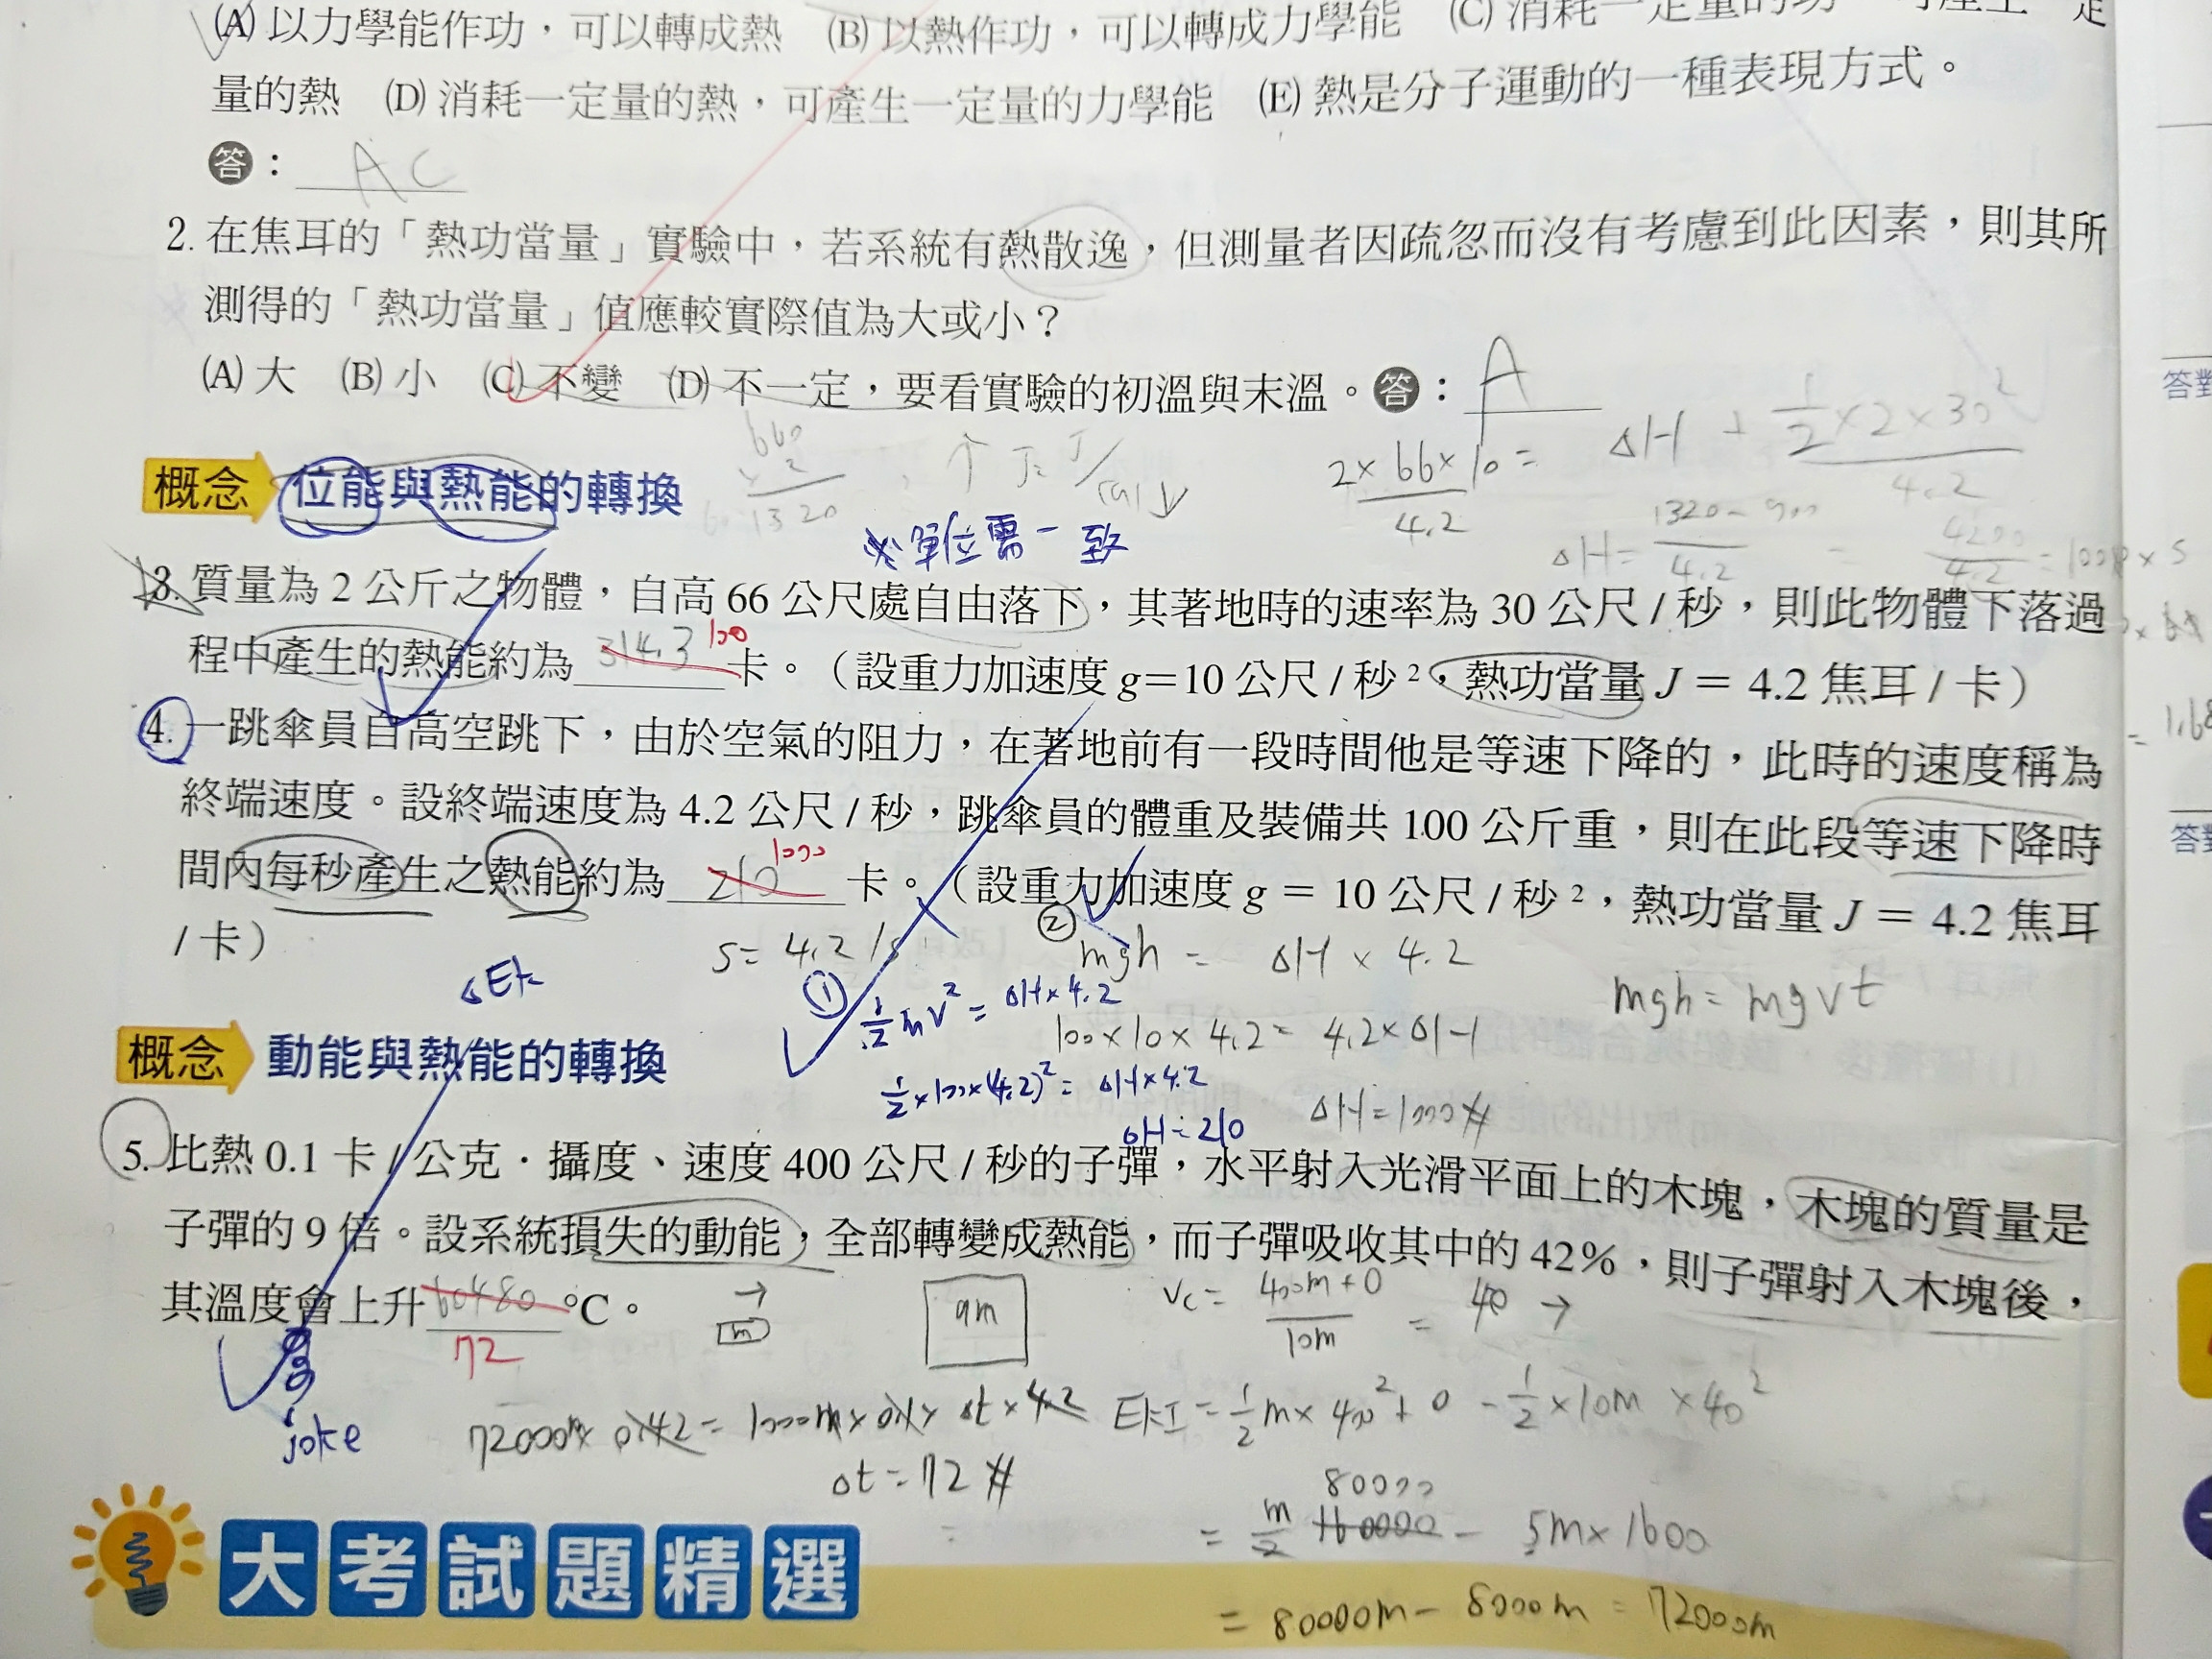 (A) 以力學能作功，可以轉成熱 (B) 以熱作功，可以轉成力學能 (C) 消耗一定量的功，可產生一定
量的熱 (D) 消耗一定量的熱，可產生一定量的力學能 (E) 熱是分子運動的一種表現方式。
答： AC
2. 在焦耳的「熱功當量」實驗中，若系統有熱散逸，但測量者因疏忽而沒有考慮到此因素，則其所
測得的「熱功當量」值應較實際值為大或小？
(A) 大 (B) 小 (C) 不變 (D) 不一定，要看實驗的初溫與末溫。答： A
660
× 2
1320
↑ J = J/cal ↓
2×66×10 =
4.2
ΔH + 1/2×2×30²
4.2
概念 位能與熱能的轉換
ΔH = 1320-900
4.2
= 4200
4.2
※單位需一致
3. 質量為 2 公斤之物體，自高 66 公尺處自由落下，其著地時的速率為 30 公尺 / 秒，則此物體下落過
程中產生的熱能約為 314.3 100 卡。（設重力加速度 g＝10 公尺 / 秒²，熱功當量 J ＝ 4.2 焦耳 / 卡）
4. 一跳傘員自高空跳下，由於空氣的阻力，在著地前有一段時間他是等速下降的，此時的速度稱為
終端速度。設終端速度為 4.2 公尺 / 秒，跳傘員的體重及裝備共 100 公斤重，則在此段等速下降時
間內每秒產生之熱能約為 210 1000 卡。（設重力加速度 g ＝ 10 公尺 / 秒²，熱功當量 J ＝ 4.2 焦耳
/ 卡）
s = 4.2 /s
② mgh = ΔH × 4.2
mgh = mgvt
ΔEk
① 1/2 mv² = ΔH×4.2
100×10×4.2 = 4.2×ΔH
概念 動能與熱能的轉換
1/2×100×(4.2)² = ΔH×4.2
ΔH = 1000 #
ΔH = 210
5. 比熱 0.1 卡 / 公克．攝度、速度 400 公尺 / 秒的子彈，水平射入光滑平面上的木塊，木塊的質量是
子彈的 9 倍。設系統損失的動能，全部轉變成熱能，而子彈吸收其中的 42%，則子彈射入木塊後，
其溫度會上升 60480 °C。
72
→
m
9m
Vc = 400m+0
10m
= 40 →
joke
72000m × 0.42 = 1000m × 0.1 × Δt × 4.2
Δt = 72 #
EkI = 1/2 m × 400² + 0 - 1/2 × 10m × 40²
80000
= m/2 160000 - 5m×1600
= 80000m - 8000m = 72000m
大考試題精選
1.68
答對
答對